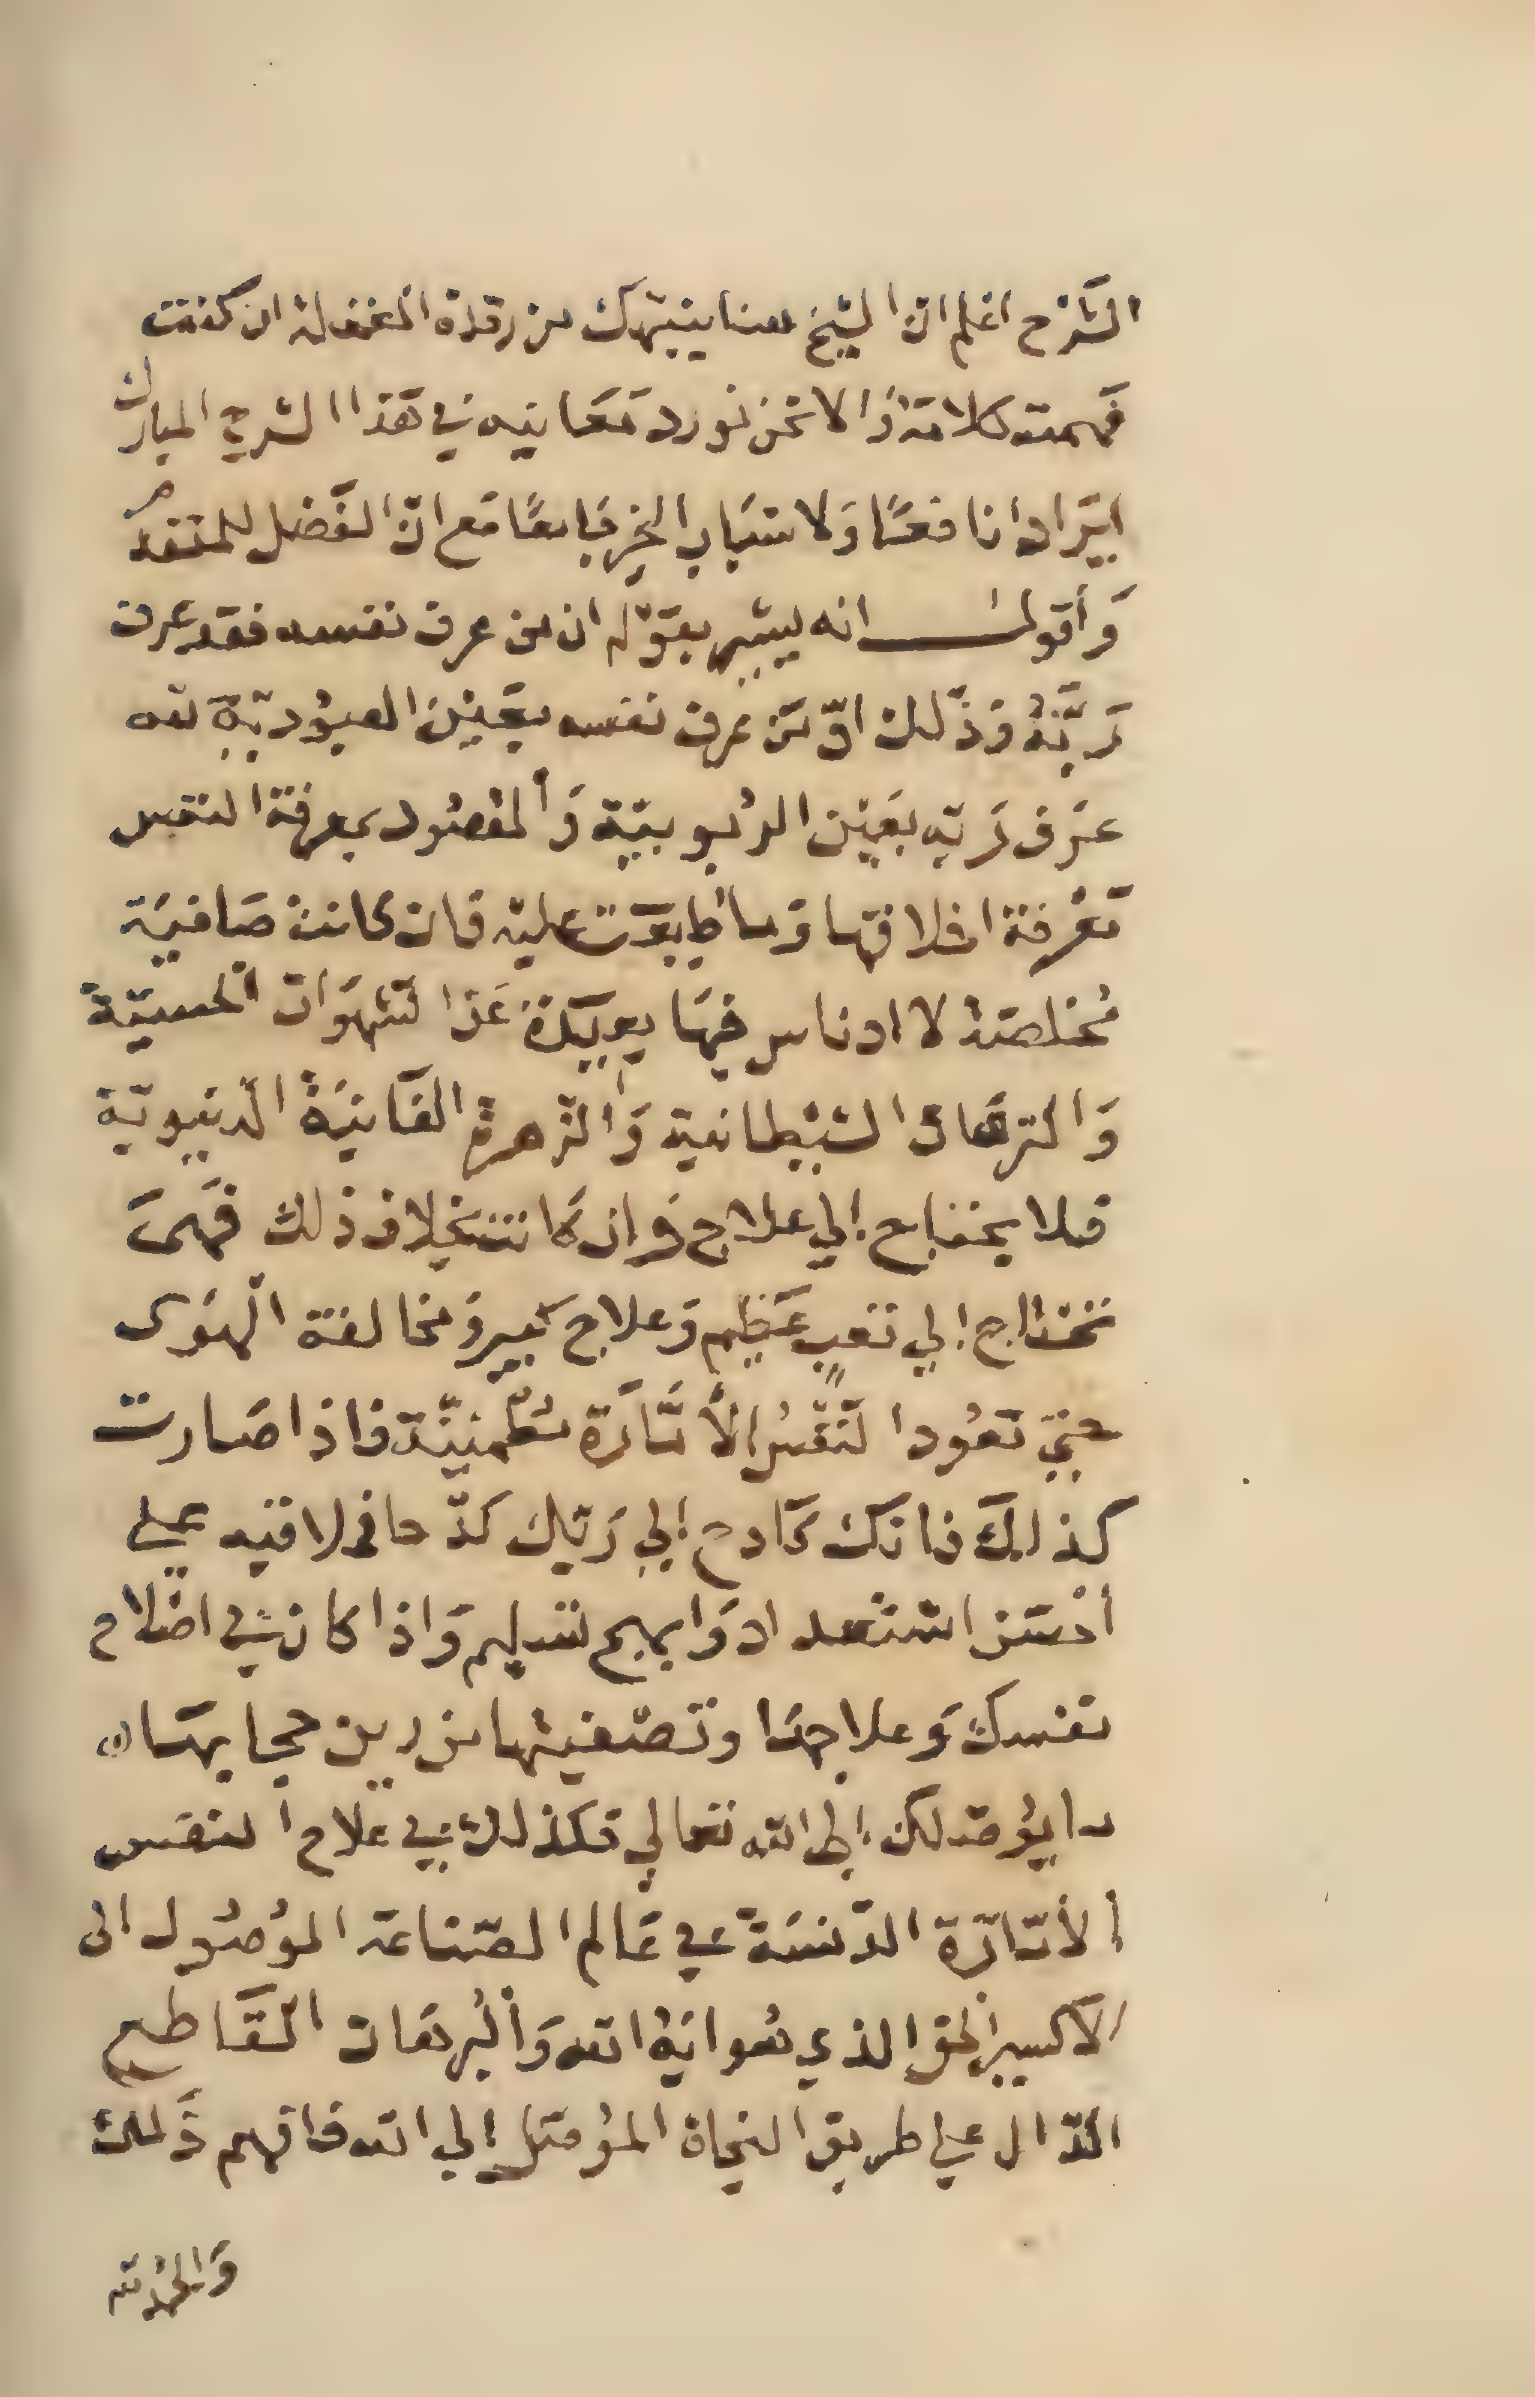 الشَّرْح اعْلم ان الشيخ هنا ينبّهك من رقدة الغفلة ان كنت
فهمت كلامه اذا لا نحن نورد مَعَانيه في هَذا الشرح المبارك
ايَرادا نافعًا وَلاسْبَاب الخير جَامعًا مَع انّ الفَضل للمتقدم
وَأقول انه يشير بقوله ان من عرف نفسه فقد عرف
رَبَّهُ وَذَلك انّ مَن عرف نفسه بعَيْن العبُوديّة لله
عَرف رَبه بعَيْن الرُبُوبيّة وَالمقصُود بمعرفة النفس
مَعْرفة اخلاقها وَما طبعَت عليْه فان كانت صَافيَة
مُخلصَة لا ادناس فيهَا بعيدَة عَن الشهوَات الحسيّة
وَالترهَات الشيْطانية وَالزهرة الفَانيَة الدنيويّة
فلا يحتاج إلي علاج وَان كَانت بخلاف ذلك فَهىَ
تحتاج إلي تعب عَظيم وَعلاج كبير وَمخالفة الهَوى
حتي تعُود النّفسُ الأمّارَة مُطمئنّة فاذا صَارت
كذلكَ فانكَ كَادح إلي رَبك كدحا فملاقيه علي
أحْسَن اسْتعداد وَابهج تسليم وَاذا كان في اصْلاح
نفسكَ وَعلاجهَا وتصْفيتها من رين حجابهَا
ما يؤصلك إلى الله تعالي فكذلك في علاج النفس
الأمّارَة الدّنسَة في عَالم الصّناعَة المؤصُول الى
الأكسير الحق الذي هُو ايَة الله وَالبُرهَان القَاطع
الدّال علي طريق النجاة المؤصّل إلي الله فافهم ذَلك
وَالحمد لله